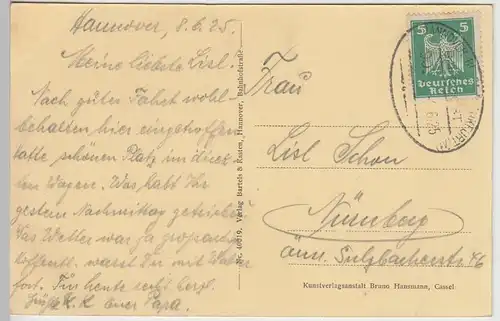 Hannover, 8.6.25.
Meine liebste Lisl!
Nach guter Fahrt wohl-
behalten hier eingetroffen
hatte schönen Platz im direk-
ten Wagen. Was habt Ihr
gestern Nachmittag getrieben
Das Wetter war ja
warst Du mit
fort. Für heute seid herzl.
Euer Papa.
Nr. 60219. Verlag Bartels & Kusten, Hannover, Bahnhofstraße
5 5
Deutsches
Reich
6.25
Frau
Lisl Schon
Nürnberg
äuss. Sulzbacherstr 46
Kunstverlagsanstalt Bruno Hansmann, Cassel